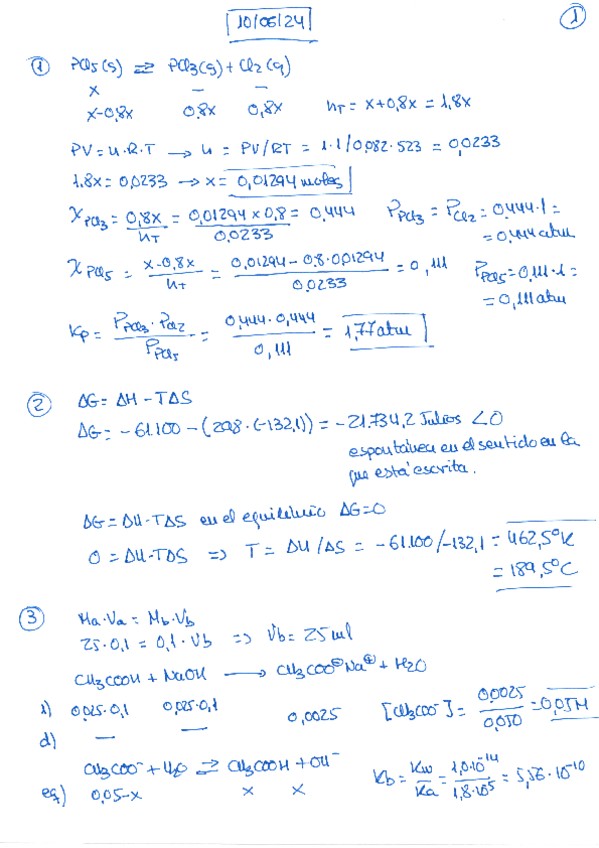 10/06/24
1
① PCl5(g) ⇄ PCl3(g) + Cl2(g)
x — —
x-0,8x 0,8x 0,8x nT = x+0,8x = 1,8x
PV = n·R·T → n = PV/RT = 1·1/0,082·523 = 0,0233
1,8x = 0,0233 → x = 0,01294 moles
XPCl3 = 0,8x/nT = 0,01294 x 0,8/0,0233 = 0,444 PPCl3 = PCl2 = 0,444·1 =
= 0,444 atm
XPCl5 = x-0,8x/nT = 0,01294 - 0,8·0,01294/0,0233 = 0,111 PPCl5 = 0,111·1 =
= 0,111 atm
Kp = PPCl3·PCl2/PPCl5 = 0,444·0,444/0,111 = 1,77 atm
② ΔG = ΔH - TΔS
ΔG = -61.100 - (298·(-132,1)) = -21.734,2 Julios < 0
espontánea en el sentido en la
que está escrita.
ΔG = ΔH - TΔS en el equilibrio ΔG = 0
0 = ΔH - TΔS ⇒ T = ΔH/ΔS = -61.100/-132,1 = 462,5ºK
= 189,5ºC
③ Ma·Va = Mb·Vb
25·0,1 = 0,1·Vb ⇒ Vb = 25 ml
CH3COOH + NaOH → CH3COO⊖Na⊕ + H2O
i) 0,025·0,1 0,025·0,1 0,0025 [CH3COO-] = 0,0025/0,050 = 0,05M
d) — —
CH3COO- + H2O ⇄ CH3COOH + OH- Kb = Kw/Ka = 1,0·10-14/1,8·10-5 = 5,56·10-10
eq) 0,05-x x x